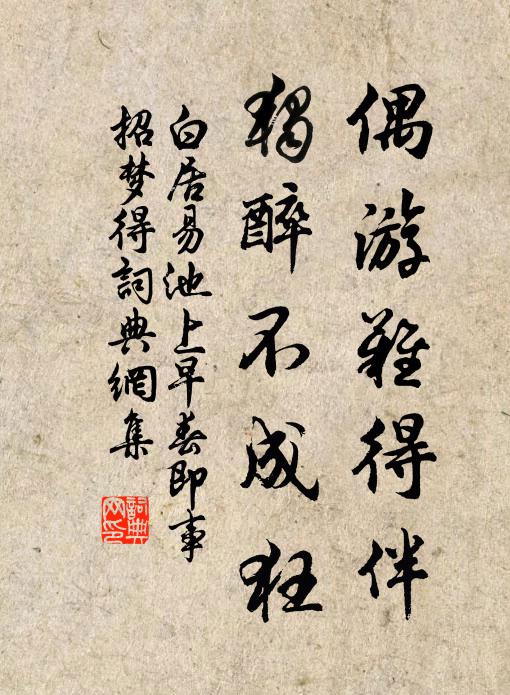 偶游難得伴
獨醉不成狂
白居易池上早春即事
招梦得詞典網集
詞典
网印